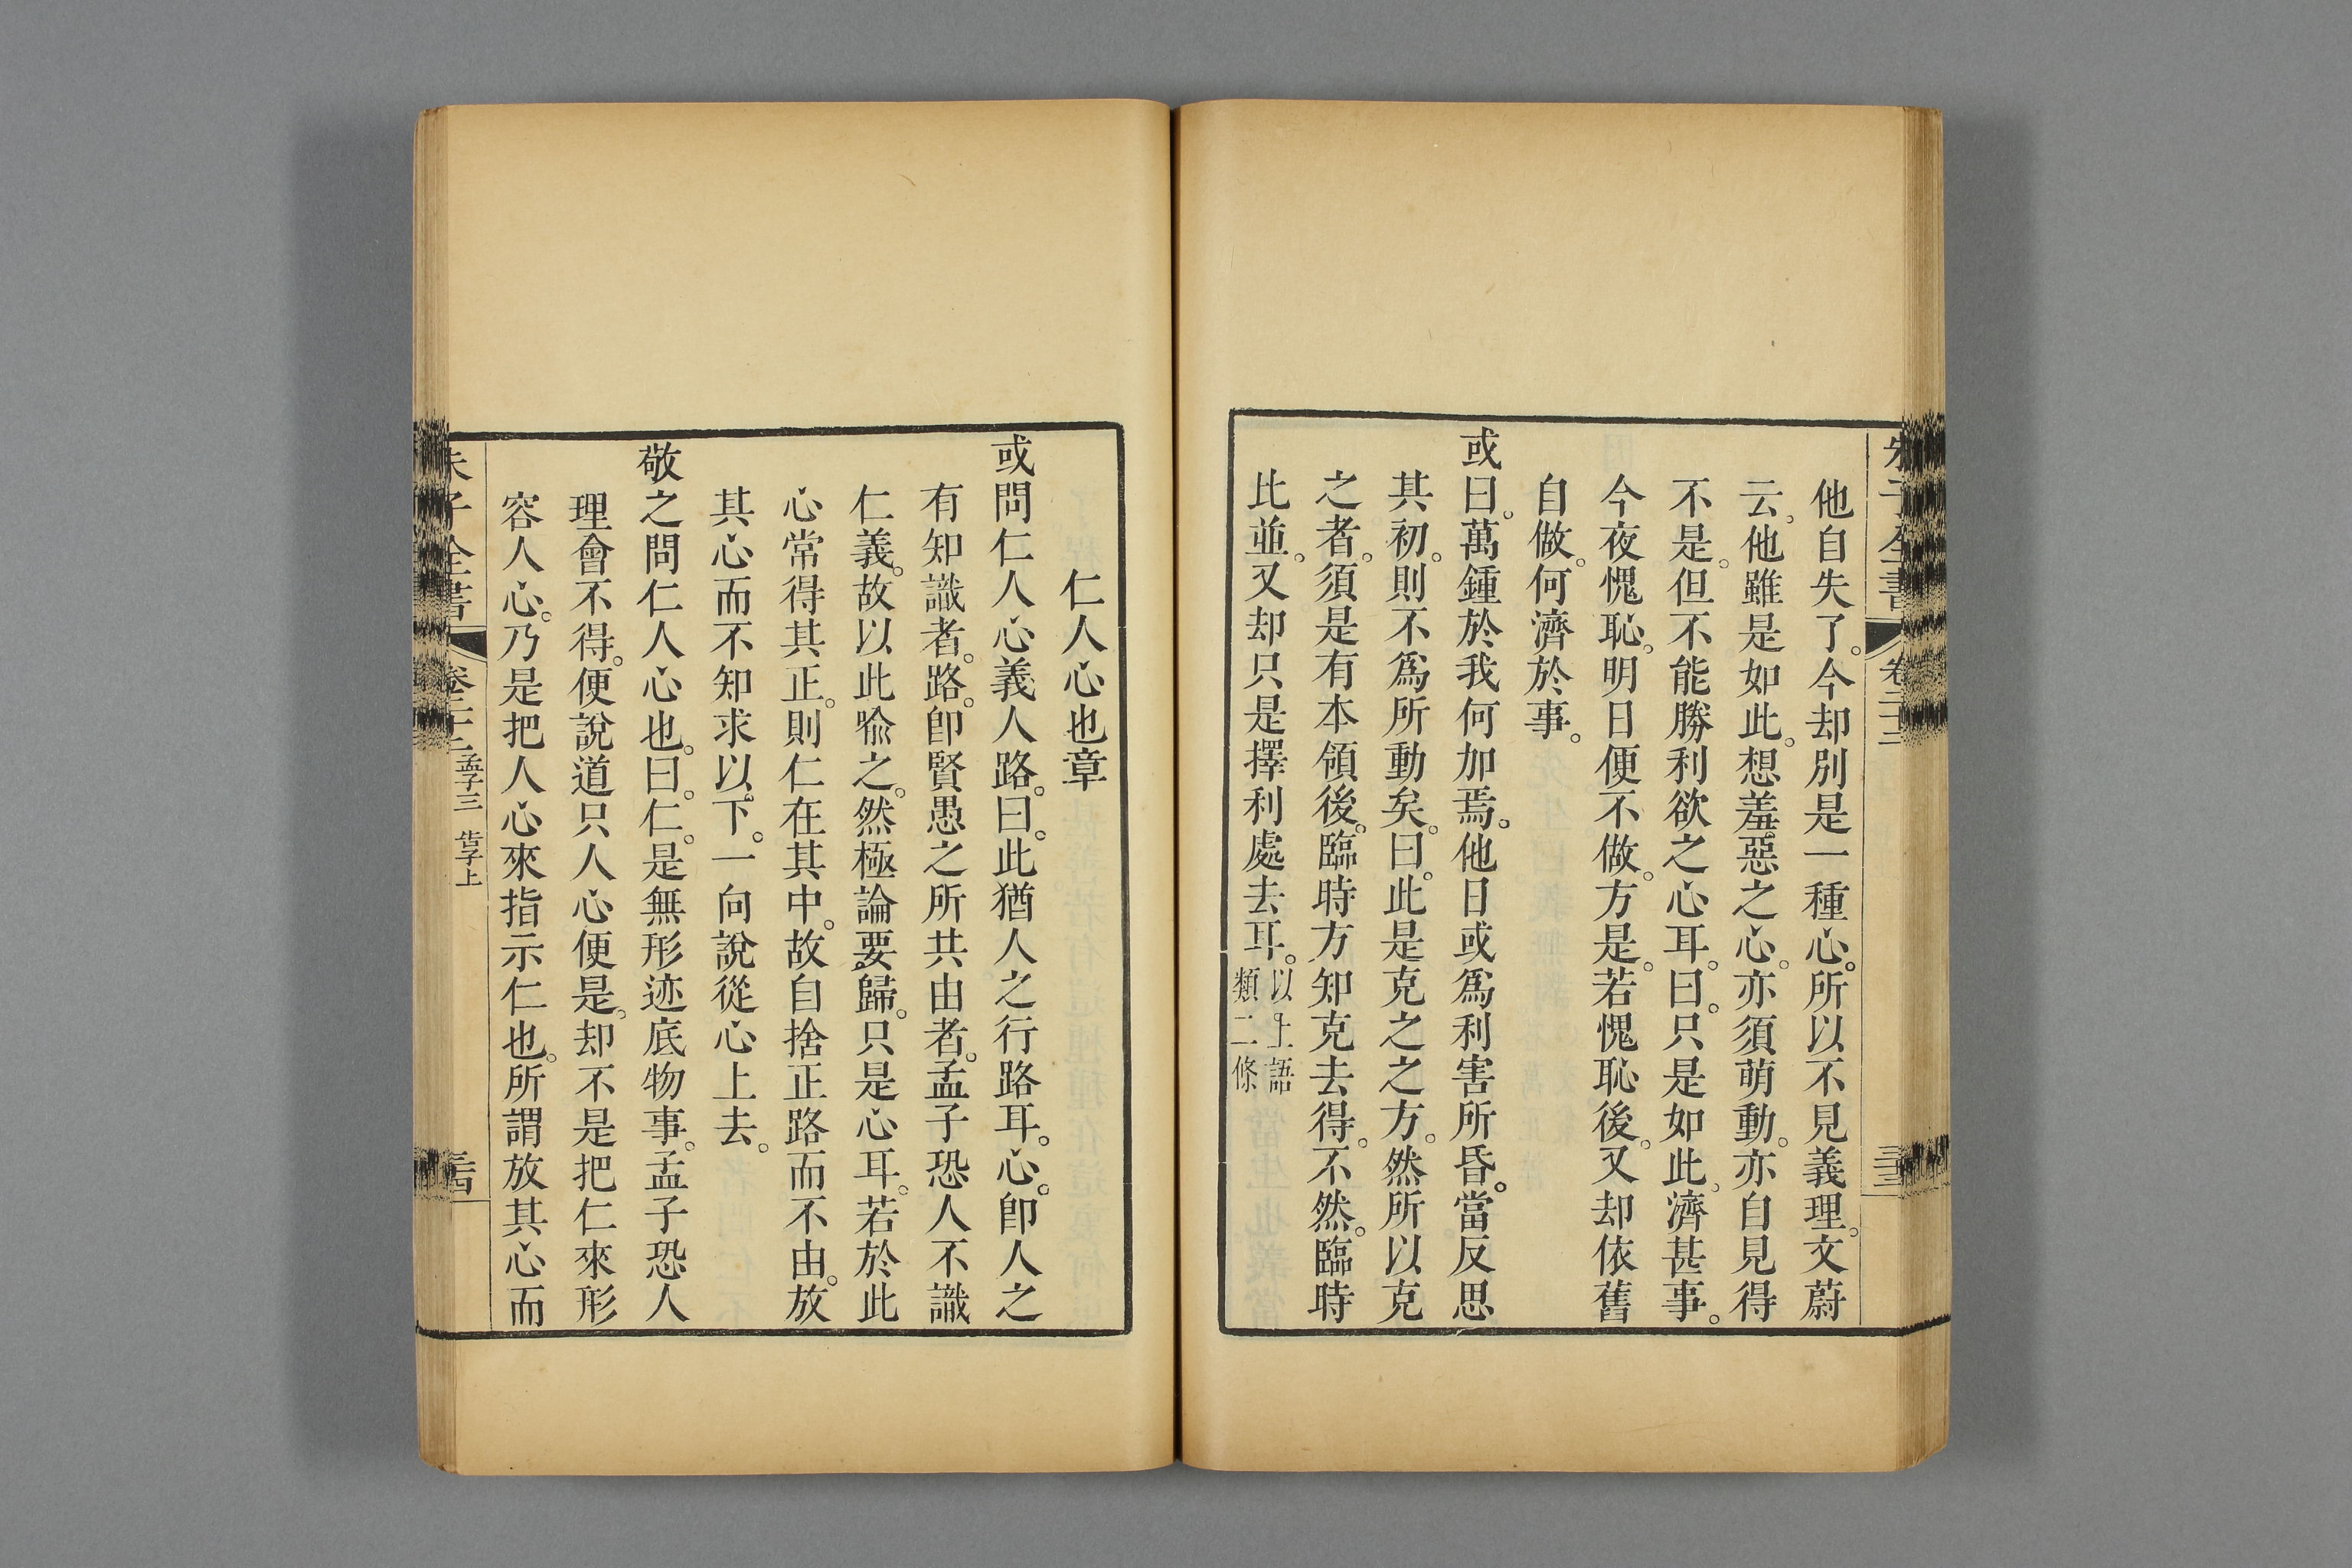 他自失了。今却別是一種心。所以不見義理。文蔚
云。他雖是如此。想羞惡之心。亦須萌動。亦自見得
不是。但不能勝利欲之心耳。曰。只是如此。濟甚事。
今夜愧恥。明日便不做。方是。若愧恥後。又却依舊
自做。何濟於事。
或曰。萬鍾於我何加焉。他日或爲利害所昏。當反思
其初。則不爲所動矣。曰。此是克之之方。然所以克
之者。須是有本領後。臨時方知克去得。不然。臨時
比並。又却只是擇利處去耳。以上語
類二條
仁人心也章
或問仁人心義人路。曰。此猶人之行路耳。心。卽人之
有知識者。路。卽賢愚之所共由者。孟子恐人不識
仁義。故以此喩之。然極論要歸。只是心耳。若於此
心常得其正。則仁在其中。故自捨正路而不由。放
其心而不知求以下。一向說從心上去。
敬之問仁人心也。曰。仁。是無形迹底物事。孟子恐人
理會不得。便說道只人心便是。却不是把仁來形
容人心。乃是把人心來指示仁也。所謂放其心而
子全書 孟子三 告子上